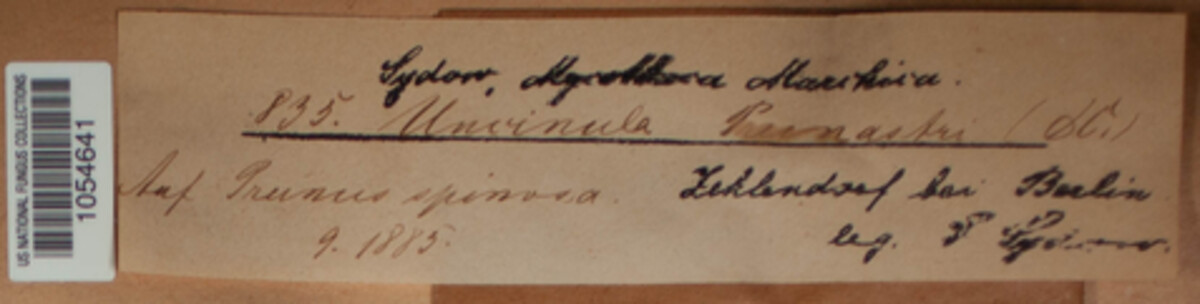 US NATIONAL FUNGUS COLLECTIONS
1054641
Sydow, Mycotheca Marchica.
835. Uncinula Prunastri (DC.)
Auf Prunus spinosa. Zehlendorf bei Berlin
9. 1885. leg. P Sydow.